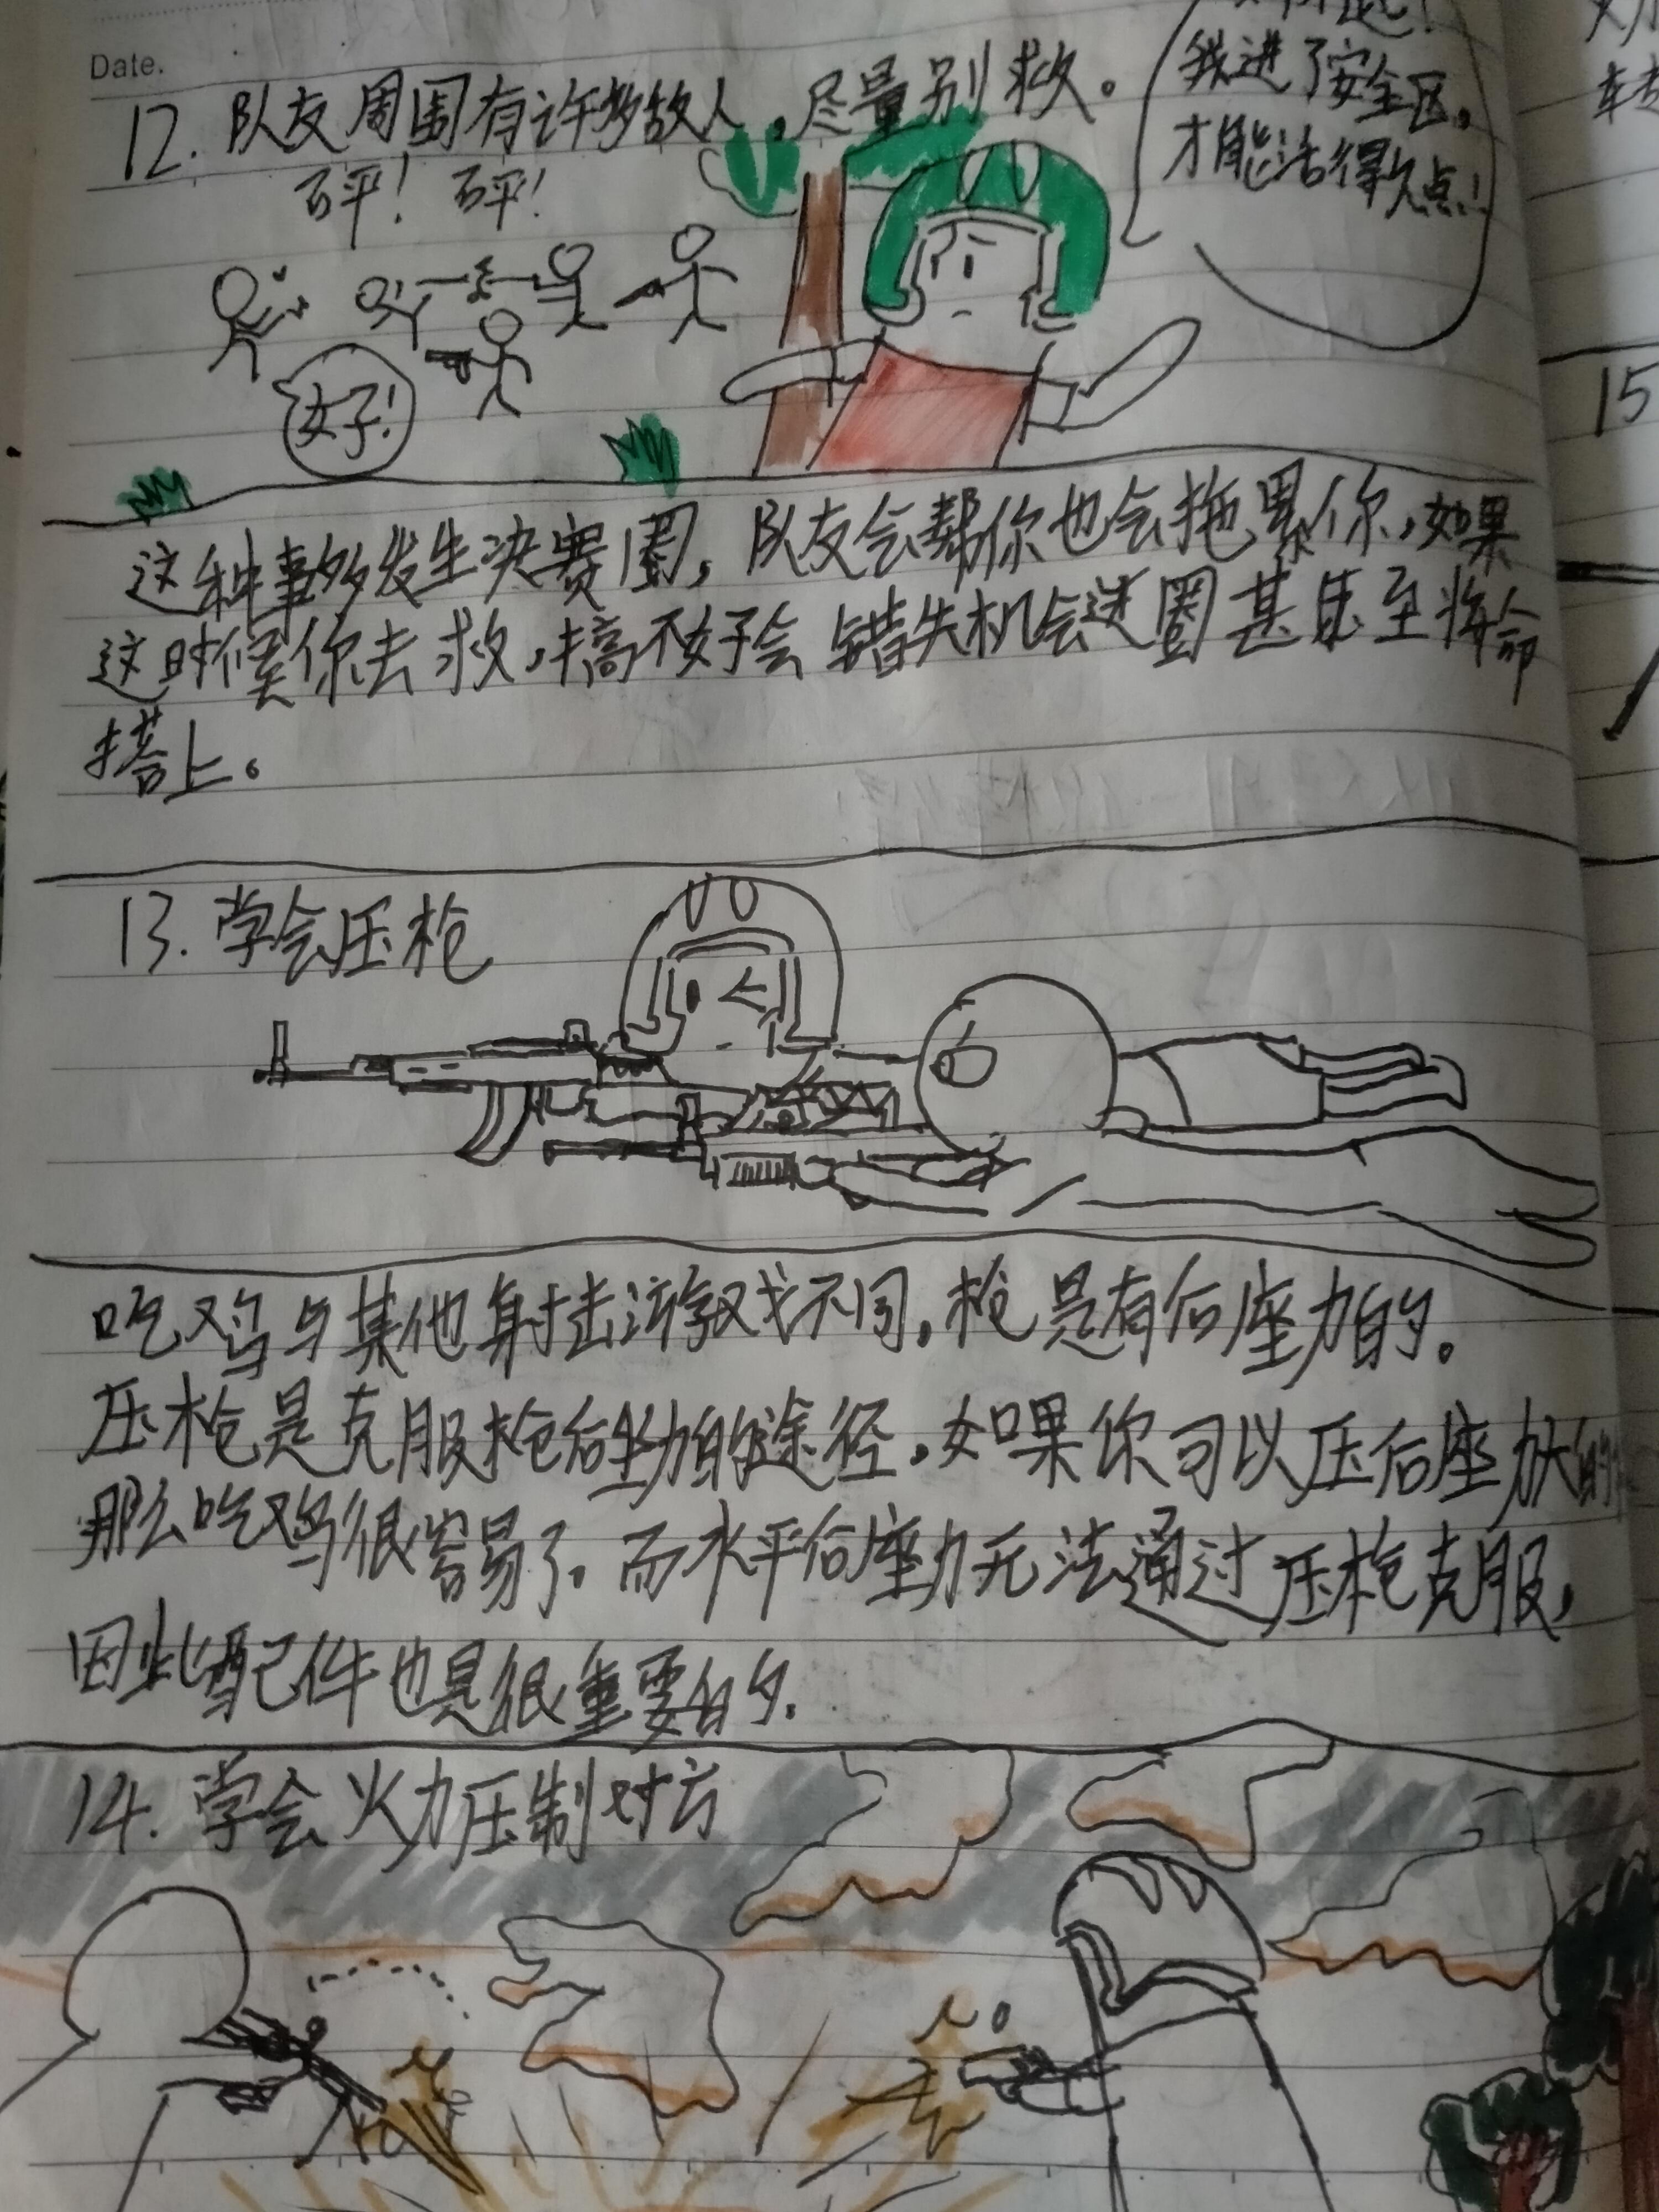 Date.
12. 队友周围有许多敌人，尽量别救。
我进了安全区，
才能活得久点！
砰！砰！
好！
15
这种事多发生决赛圈，队友会帮你也会拖累你，如果
这时候你去救，搞不好会错失机会进圈甚至将命
搭上。
13. 学会压枪
吃鸡与其他射击游戏不同，枪是有后座力的。
压枪是克服枪后坐力的途径，如果你可以压后座力大的
那么吃鸡很容易了。而水平后座力无法通过压枪克服，
因此配件也是很重要的。
14. 学会火力压制对方